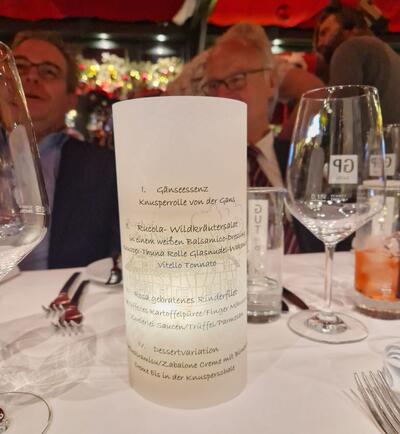 I. Gänseessenz
Knusperrolle von der Gans
Rucola- Wildkräutersalat
in einem weißen Balsamico-Dressing
Thuna Rolle Glasnudel
Vitello Tonnato
Rosa gebratenes Rinderfilet
Kartoffelpüree/Finger
Saucen/Trüffel/Parmesan
Dessertvariation
Zabaione Creme mit
Eis in der Knusperschale
GP
GUT